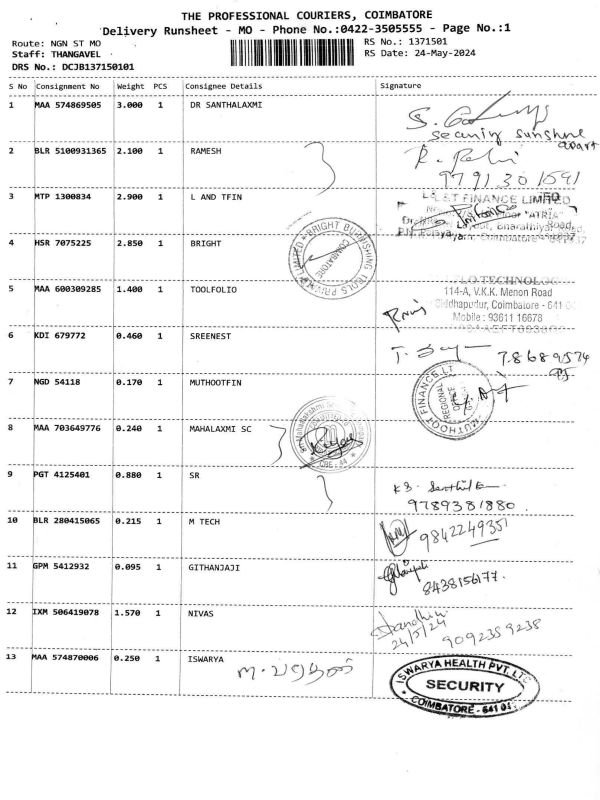 THE PROFESSIONAL COURIERS, COIMBATORE
Delivery Runsheet - MO - Phone No.:0422-3505555 - Page No.:1
Route: NGN ST MO RS No.: 1371501
Staff: THANGAVEL RS Date: 24-May-2024
DRS No.: DCJB137150101
S No Consignment No Weight PCS Consignee Details Signature
1 MAA 574869505 3.000 1 DR SANTHALAXMI
sunshine
apart
2 BLR 5100931365 2.100 1 RAMESH
9791301591
3 MTP 1300834 2.900 1 L AND TFIN
L&T FINANCE LIMITED
"ATRIA"
Road,
4 HSR 7075225 2.850 1 BRIGHT
BRIGHT BURNISHING TOOLS PRIVATE LIMITED
COIMBATORE
5 MAA 600309285 1.400 1 TOOLFOLIO
114-A, V.K.K. Menon Road
Siddhapudur, Coimbatore - 641
Mobile : 93611 16678
6 KDI 679772 0.460 1 SREENEST
7 NGD 54118 0.170 1 MUTHOOTFIN
MUTHOOT FINANCE LT
REGIONAL
OFFICE
8 MAA 703649776 0.240 1 MAHALAXMI SC
CBE - 44
9 PGT 4125401 0.880 1 SR
9789381880
10 BLR 280415065 0.215 1 M TECH
9842249351
11 GPM 5412932 0.095 1 GITHANJAJI
8438156177
12 IXM 506419078 1.570 1 NIVAS
24/5/24
9092359238
13 MAA 574870006 0.250 1 ISWARYA
ISWARYA HEALTH PVT. LTD
SECURITY
COIMBATORE - 641